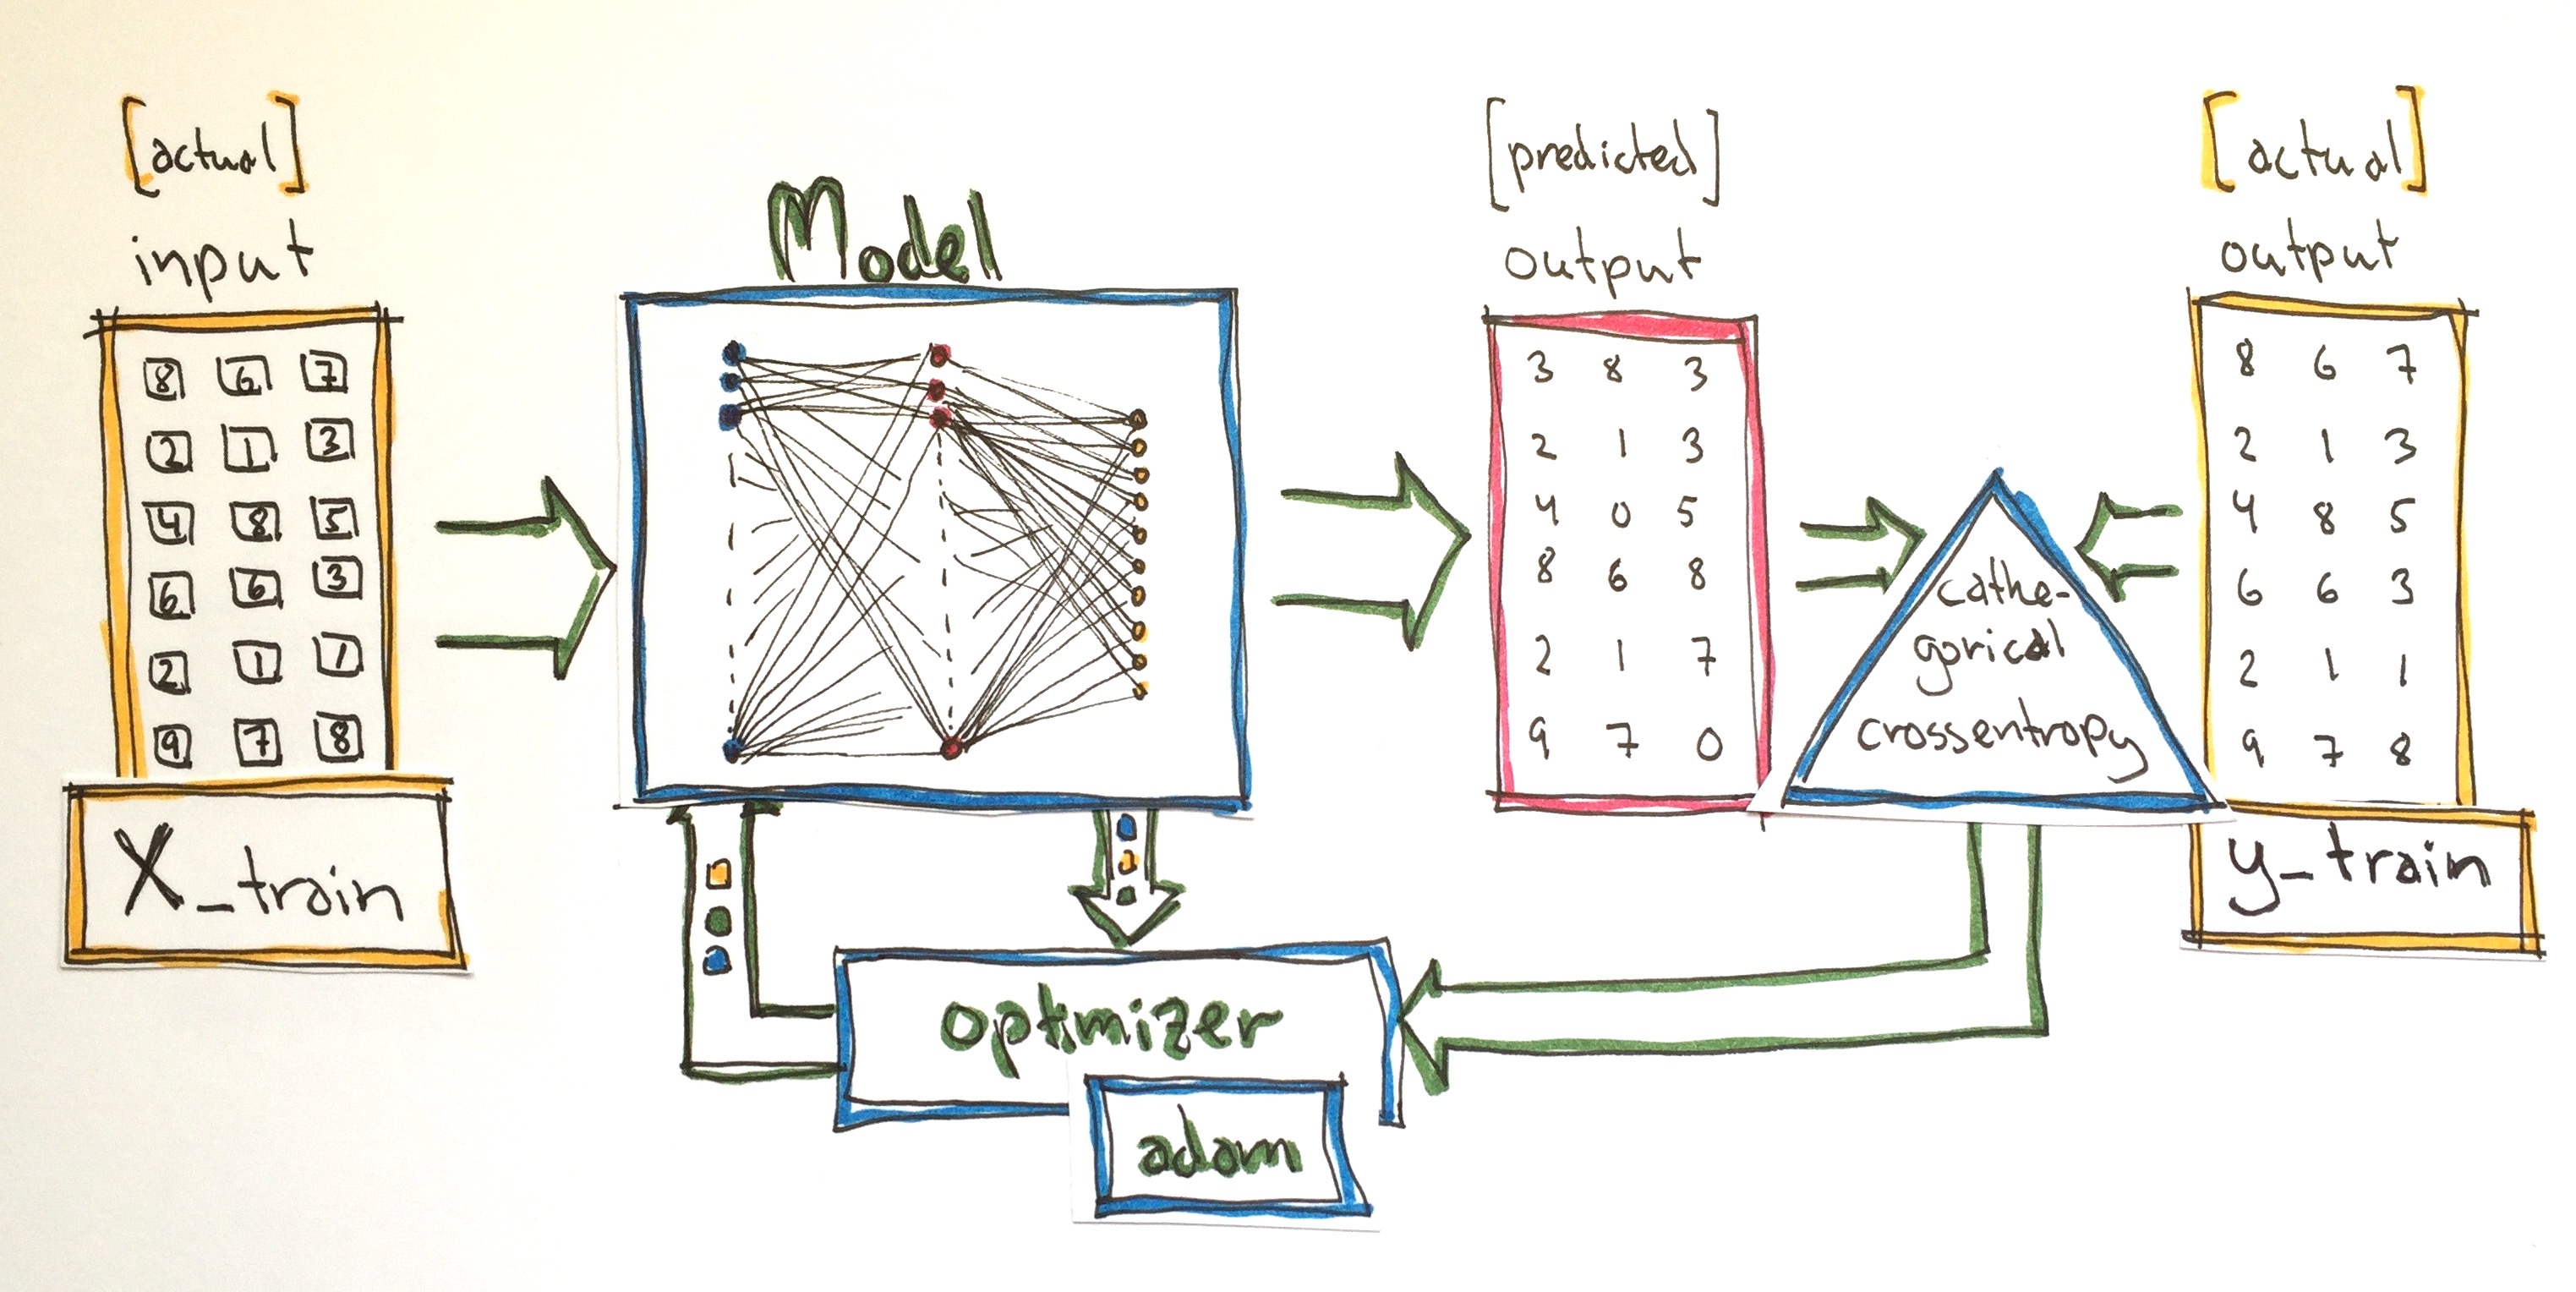 [actual]
input
8 6 7
2 1 3
4 8 5
6 6 3
2 1 1
9 7 8
X_train
Model
[predicted]
output
3 8 3
2 1 3
4 0 5
8 6 8
2 1 7
9 7 0
cathe-
gorical
crossentropy
[actual]
output
8 6 7
2 1 3
4 8 5
6 6 3
2 1 1
9 7 8
y_train
optimizer
adam